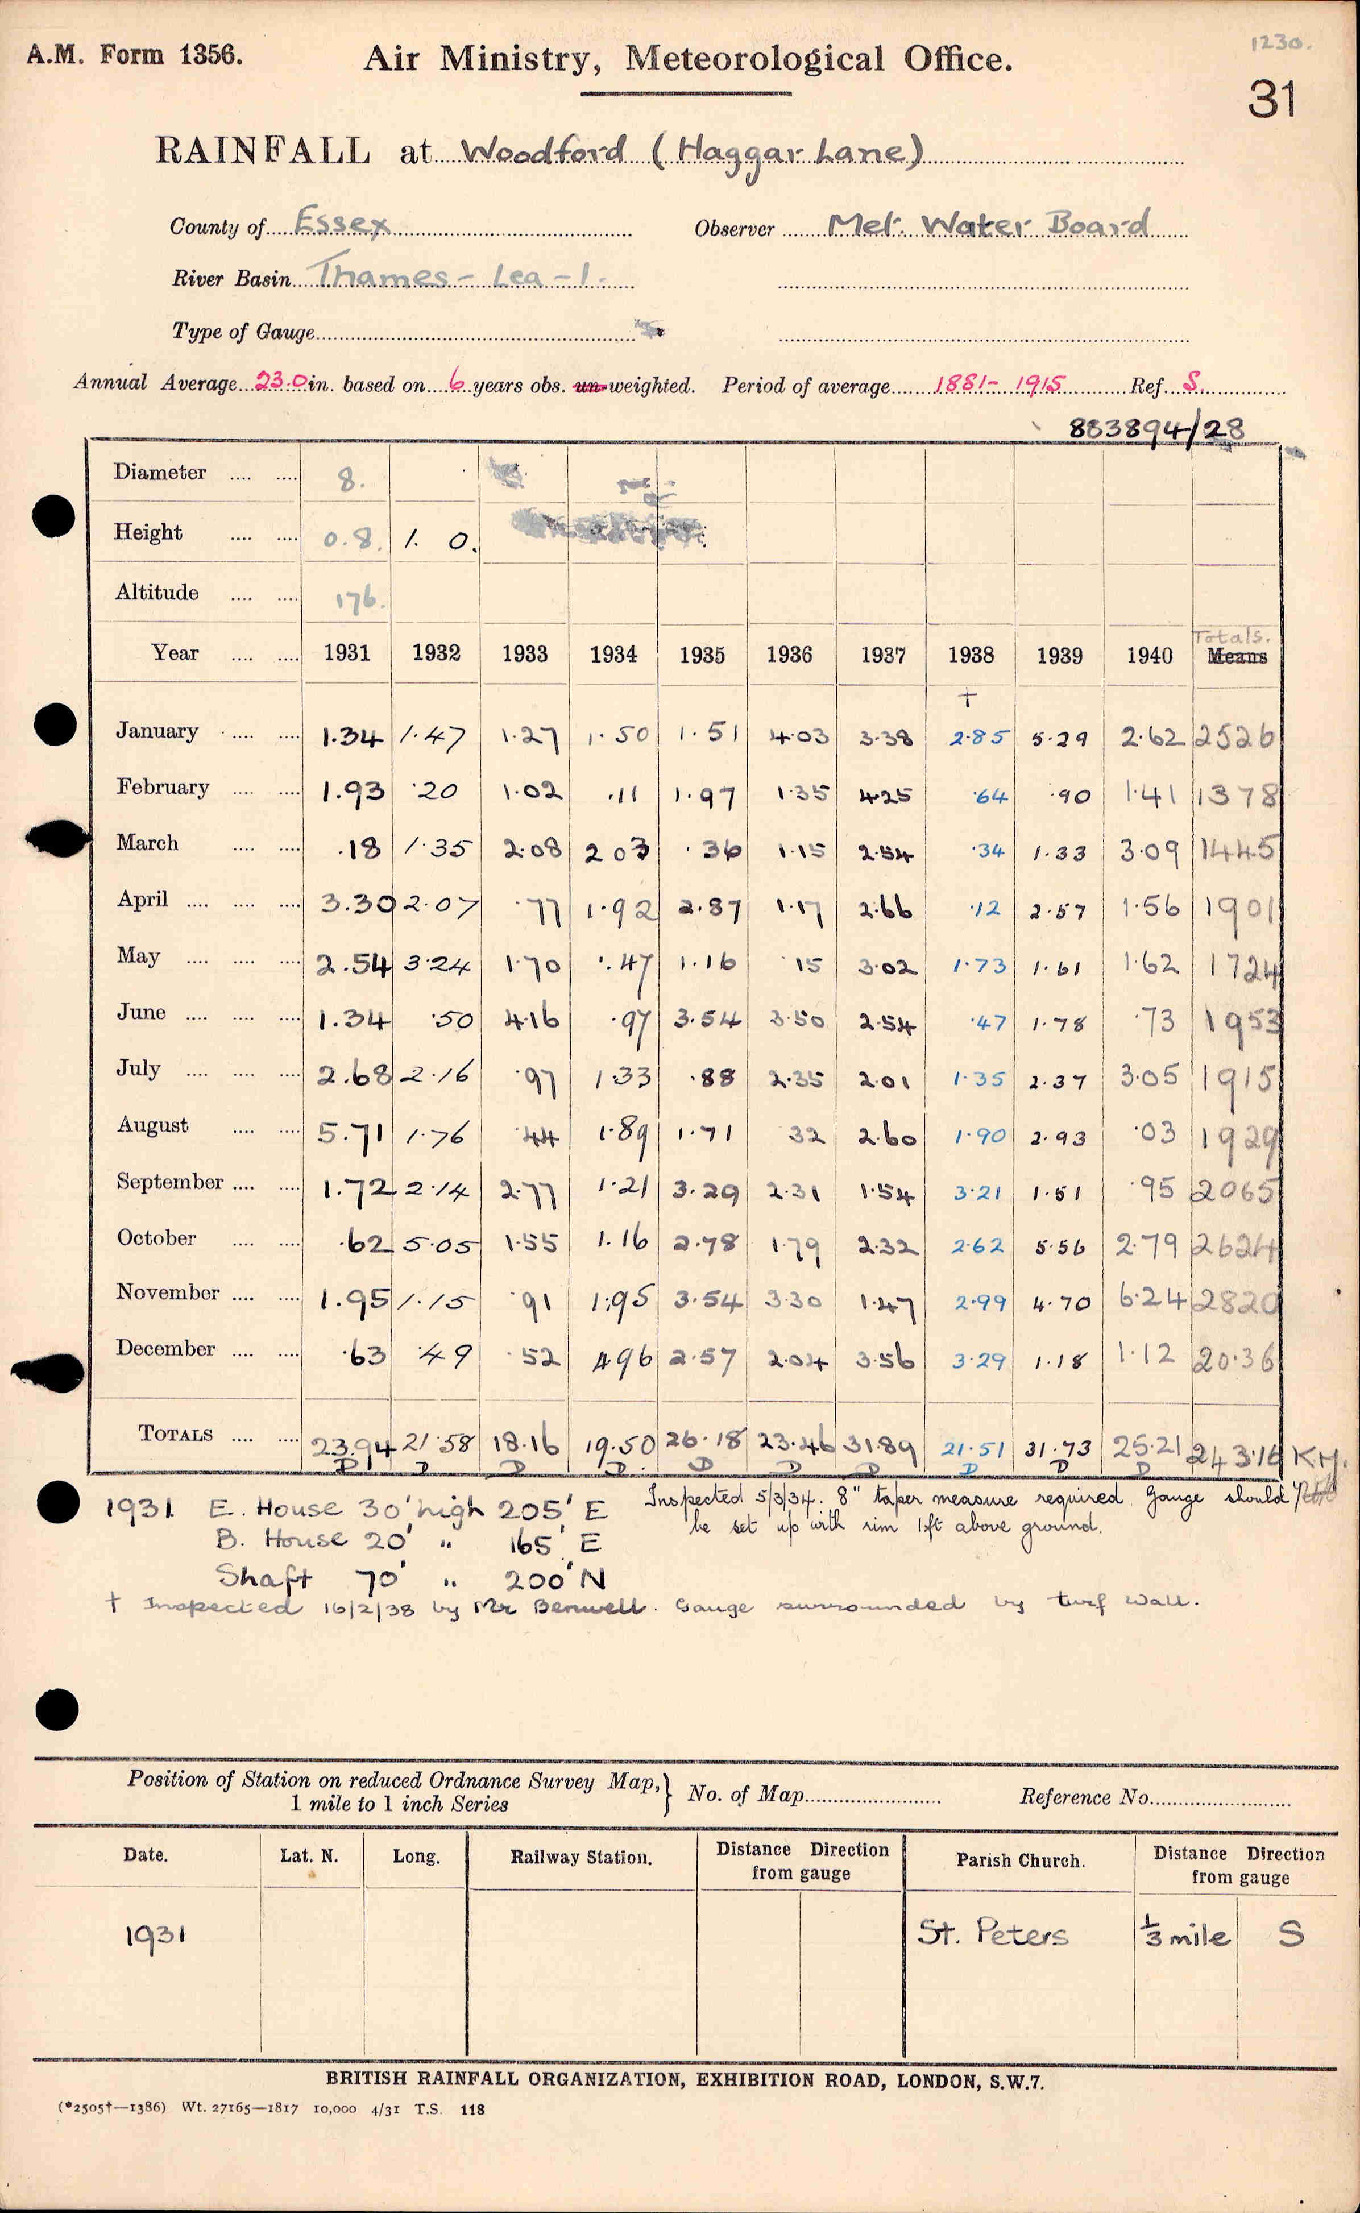 1230.
A.M. Form 1356. Air Ministry, Meteorological Office.
31
RAINFALL at Woodford (Haggar Lane)
County of Essex Observer Met. Water Board
River Basin Thames - Lea - 1.
Type of Gauge
Annual Average 23.0 in. based on 6 years obs. un-weighted. Period of average 1881-1915 Ref. S.
883894/28
Diameter .... .... 8.
Height .... .... 0.8. 1. 0.
Altitude .... .... 176.
Totals.
Year .... .... 1931 1932 1933 1934 1935 1936 1937 1938 1939 1940 Means
†
January .... .... 1.34 1.47 1.27 1.50 1.51 4.03 3.38 2.85 5.29 2.62 2526
February .... .... 1.93 .20 1.02 .11 1.97 1.35 4.25 .64 .90 1.41 1378
March .... .... .18 1.35 2.08 2.03 .36 1.15 2.54 .34 1.33 3.09 1445
April .... .... .... 3.30 2.07 .77 1.92 2.87 1.17 2.66 .12 2.57 1.56 1901
May .... .... .... 2.54 3.24 1.70 .47 1.16 .15 3.02 1.73 1.61 1.62 1724
June .... .... .... 1.34 .50 4.16 .97 3.54 3.50 2.54 .47 1.78 .73 1953
July .... .... .... 2.68 2.16 .97 1.33 .88 2.35 2.01 1.35 2.37 3.05 1915
August .... .... 5.71 1.76 .44 1.89 1.71 .32 2.60 1.90 2.93 .03 1929
September .... .... 1.72 2.14 2.77 1.21 3.29 2.31 1.54 3.21 1.51 .95 2065
October .... .... .62 5.05 1.55 1.16 2.78 1.79 2.32 2.62 5.56 2.79 2624
November .... .... 1.95 1.15 .91 1.95 3.54 3.30 1.47 2.99 4.70 6.24 2820
December .... .... .63 .49 .52 4.96 2.57 2.04 3.56 3.29 1.18 1.12 20.36
TOTALS .... .... 23.94 21.58 18.16 19.50 26.18 23.46 31.89 21.51 31.73 25.21 243.16 K.M.
D D D D D D D D D D
1931 E. House 30' high 205' E Inspected 5/3/34. 8" taper measure required. Gauge should
be set up with rim 1ft above ground.
B. House 20' " 165' E
Shaft 70' " 200' N
† Inspected 16/2/38 by Mr Benwell. Gauge surrounded by turf wall.
Position of Station on reduced Ordnance Survey Map, } No. of Map Reference No.
1 mile to 1 inch Series
Date. Lat. N. Long. Railway Station. Distance Direction from gauge Parish Church. Distance Direction from gauge
1931 St. Peters 1/3 mile S
BRITISH RAINFALL ORGANIZATION, EXHIBITION ROAD, LONDON, S.W.7.
(*2505†—1386) Wt. 27165—1817 10,000 4/31 T.S. 118